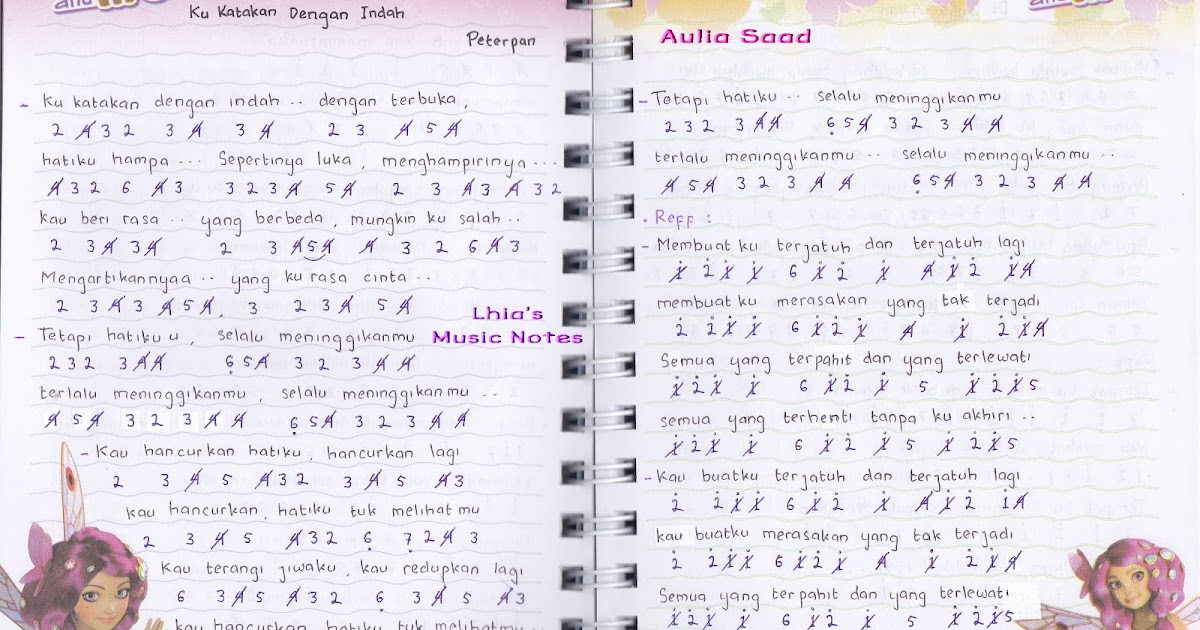 Ku Katakan Dengan Indah
Peterpan
- Ku katakan dengan indah .. dengan terbuka,
2 4̸ 3 2 3 4̸ 3 4̸ 2 3 4̸ 5 4̸
hatiku hampa ... Sepertinya luka, menghampirinya ...
4̸ 3 2 6 4̸ 3 3 2 3 4̸ 5 4̸ 2 3 4̸ 3 4̸ 3 2
kau beri rasa .. yang berbeda, mungkin ku salah ..
2 3 4̸ 3 4̸ 2 3 4̸ 5 4̸ 4̸ 3 2 6 4̸ 3
Mengartikannyaa .. yang ku rasa cinta ..
2 3 4̸ 3 4̸ 5 4̸ . 3 2 3 4̸ 5 4̸
- Tetapi hatiku u, selalu meninggikanmu
2 3 2 3 4̸ 4̸ 6̣ 5 4̸ 3 2 3 4̸ 4̸
terlalu meninggikanmu, selalu meninggikan mu ..
4̸ 5 4̸ 3 2 3 4̸ 4̸ 6̣ 5 4̸ 3 2 3 4̸ 4̸
- Kau hancurkan hatiku, hancurkan lagi
2 3 4̸ 5 4̸ 3 2 3 4̸ 5 4̸ 3
kau hancurkan, hatiku tuk melihat mu
2 3 4̸ 5 4̸ 3 2 6̣ 7̣ 2 4̸ 3
Kau terangi jiwaku, kau redupkan lagi
6 3 4̸ 5 4̸ 3 2 6̣ 3 4̸ 5 4̸ 3
kau hancurkan hatiku tuk melihatmu
Lhia's
Music Notes
Aulia Saad
- Tetapi hatiku .. selalu meninggikanmu
2 3 2 3 4̸ 4̸ 6̣ 5 4̸ 3 2 3 4̸ 4̸
terlalu meninggikanmu .. selalu meninggikanmu ..
4̸ 5 4̸ 3 2 3 4̸ 4̸ 6̣ 5 4̸ 3 2 3 4̸ 4̸
. Reff :
- Membuat ku terjatuh dan terjatuh lagi
1̸̇ 2̇ 1̸̇ 1̸̇ 6 1̸̇ 2̇ 1̸̇ 4̸ 1̸̇ 2̇ 1̸̇ 4̸
membuat ku merasakan yang tak terjadi
2̇ 2̇ 1̸̇ 1̸̇ 6 1̸̇ 2̇ 1̸̇ 4̸ 1̸̇ 2̇ 1̸̇ 4̸
Semua yang terpahit dan yang terlewati
1̸̇ 2̇ 1̸̇ 1̸̇ 6 1̸̇ 2̇ 1̸̇ 5 1̸̇ 2̇ 1̸̇ 5
semua yang terhenti tanpa ku akhiri ..
1̸̇ 2̇ 1̸̇ 1̸̇ 6 1̸̇ 2̇ 1̸̇ 5 1̸̇ 2̇ 1̸̇ 5
- Kau buatku terjatuh dan terjatuh lagi
2̇ 2̇ 1̸̇ 1̸̇ 6 1̸̇ 2̇ 1̸̇ 4̸ 1̸̇ 2̇ 1̇ 4̸
kau buatku merasakan yang tak terjadi
2̇ 2̇ 1̸̇ 1̸̇ 6 1̸̇ 2̇ 1̸̇ 4̸ 1̸̇ 2̇ 1̸̇ 4̸
Semua yang terpahit dan yang terlewati
1̸̇ 2̇ 1̸̇ 1̸̇ 6 1̸̇ 2̇ 1̸̇ 5 1̸̇ 2̇ 1̸̇ 5